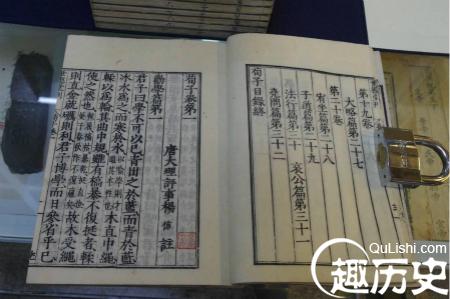 第十九卷
大略篇第二十七
第二十卷
宥坐篇第二十八
子道篇第二十九
法行篇第三十 哀公篇第三十一
堯問篇第三十二
荀子目錄終
荀子卷第一
唐大理評事楊倞註
勸學篇第一
君子曰學不可以已青出之於藍而青於藍
冰水為之而寒於水以喻學則才過其本性也木直中繩
輮以為輪其曲中規雖有槁暴不復挺者輮
使之然也故木受繩
則直金就礪則利君子博學而日參省乎己
QuLishi.com
趣历史